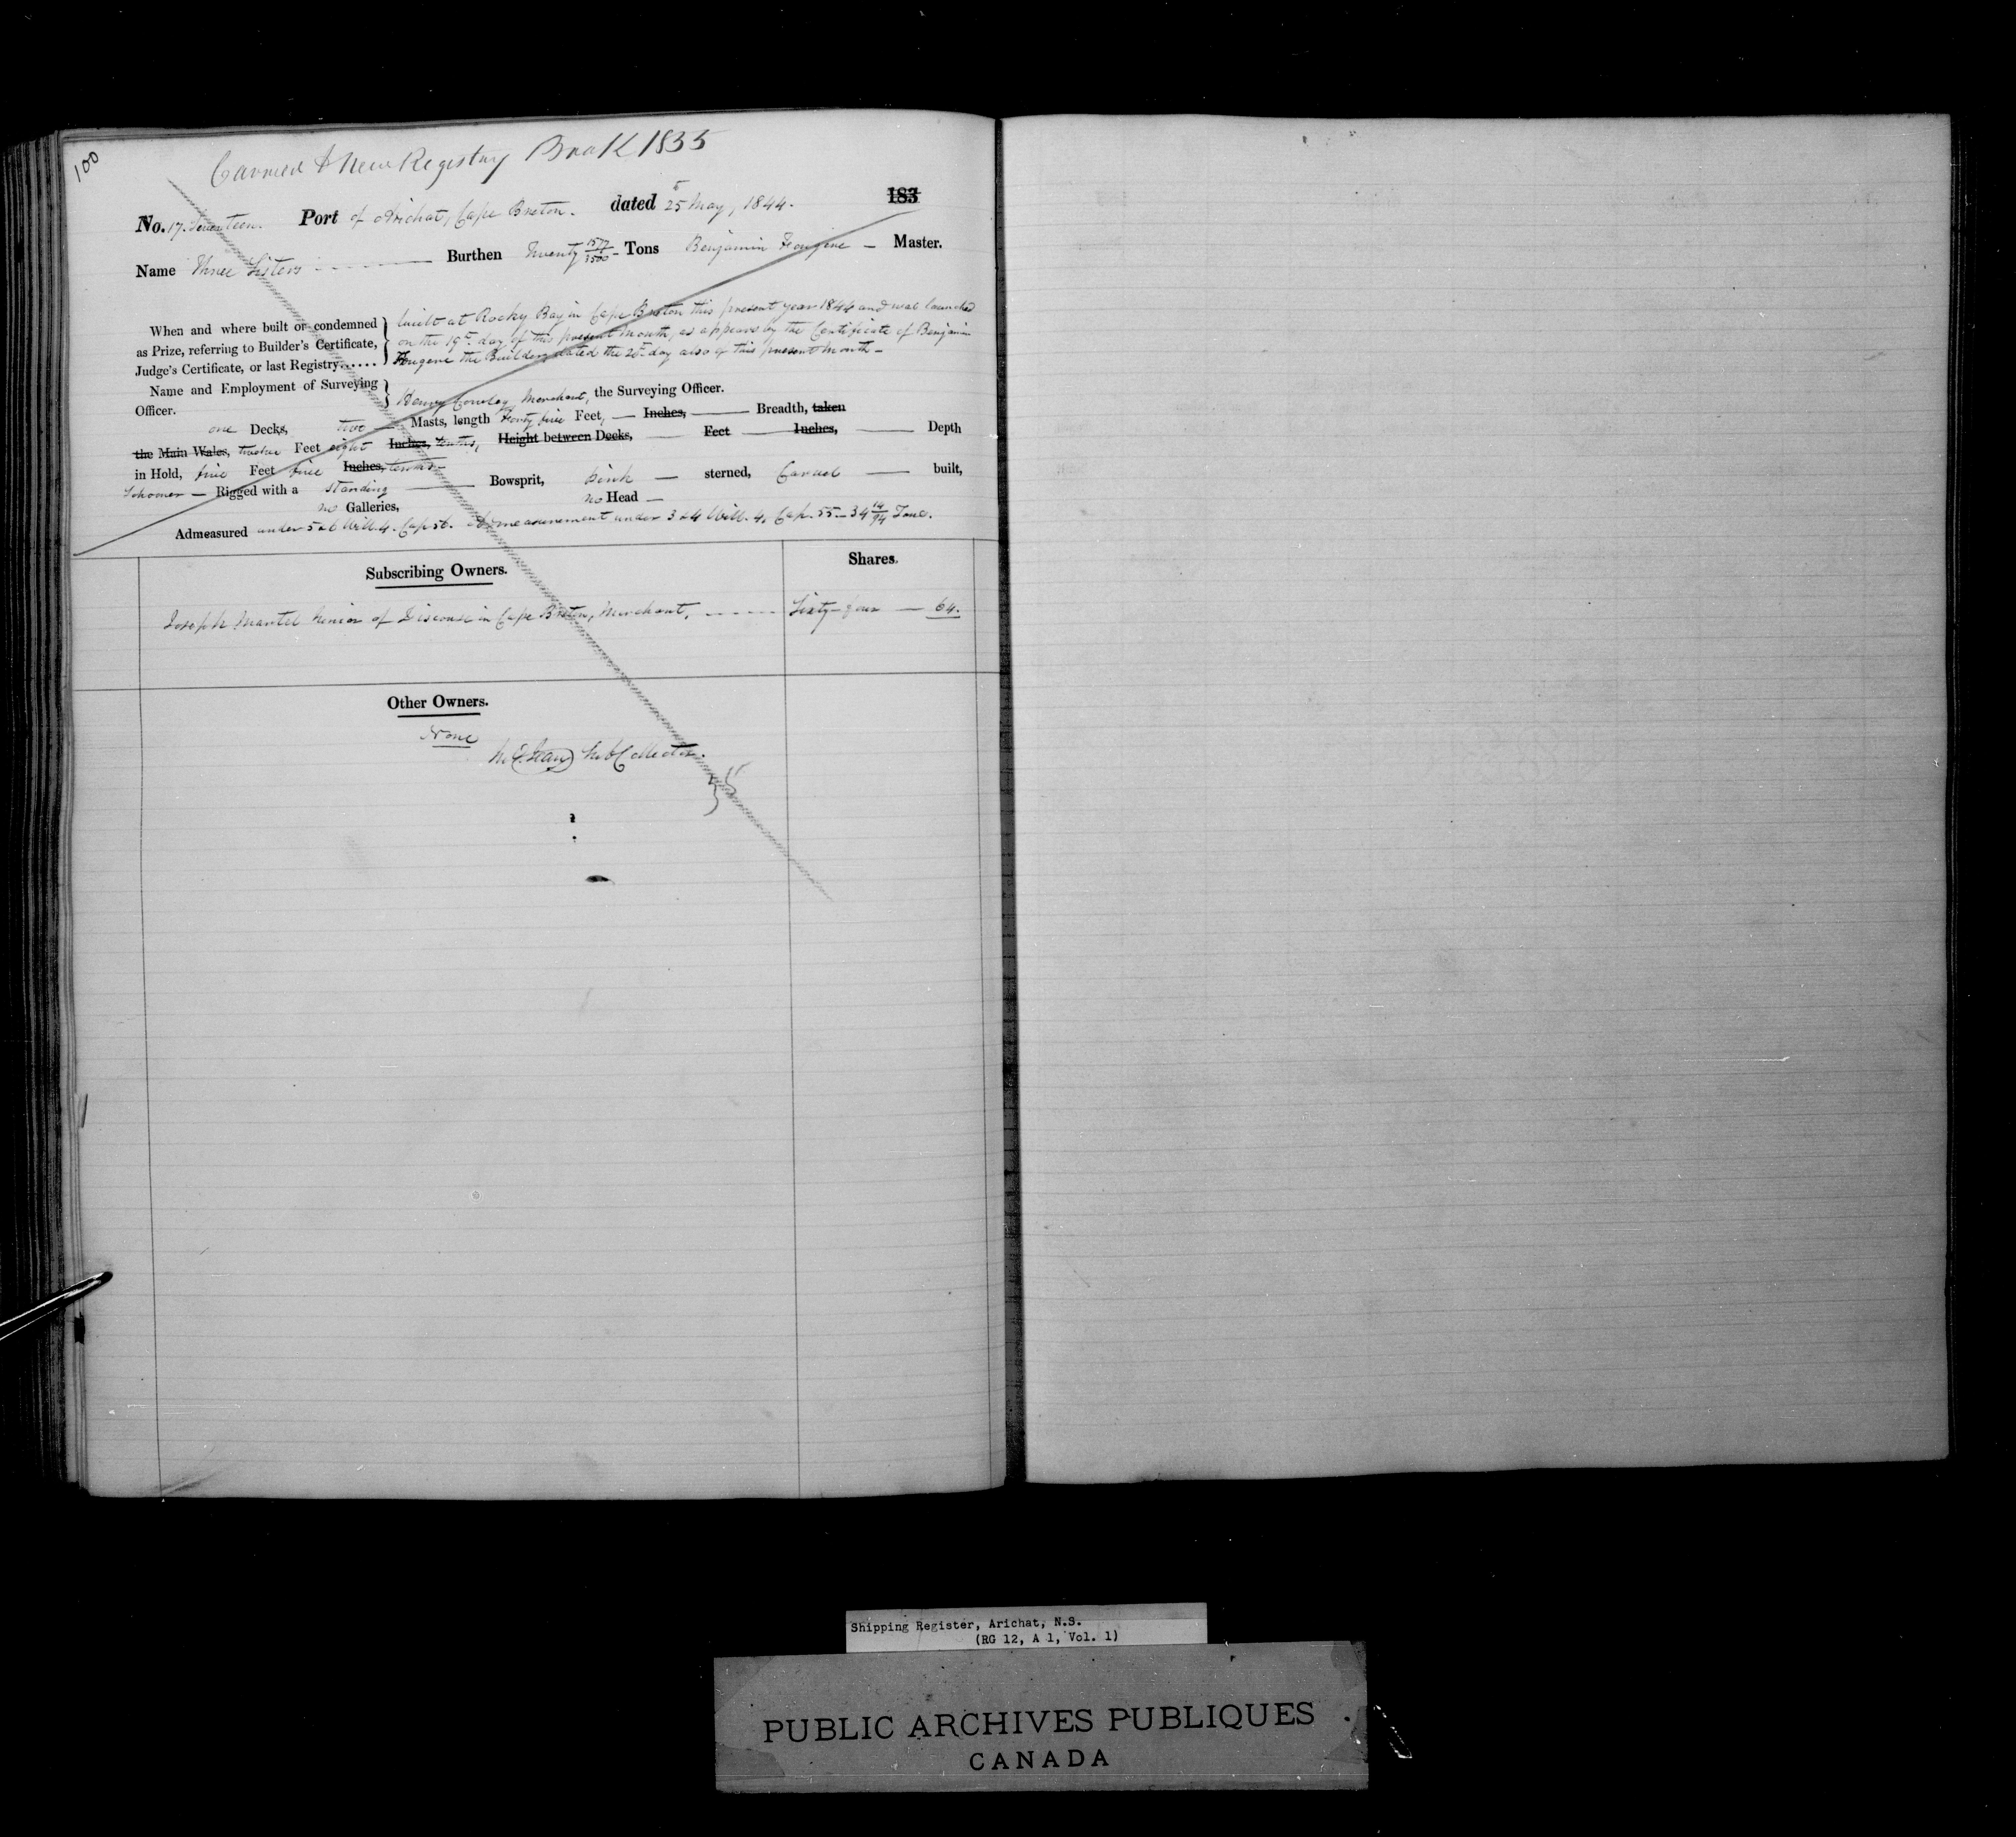 100
Carried to New Registry Book 1855
No. 17. Seventeen. Port of Arichat, Cape Breton. dated 25 May, 1844. 183
Name Three Sisters Burthen Twenty 1577/3500 Tons Benjamin Fougere — Master.
When and where built or condemned as Prize, referring to Builder's Certificate, Judge's Certificate, or last Registry......
built at Rocky Bay in Cape Breton this present year 1844 and was launched
on the 19th. day of this present month, as appears by the Certificate of Benjamin
Fougere the Builder, dated the day also of this present month —
Name and Employment of Surveying Officer.
Henry Merchant, the Surveying Officer.
one Decks, two — Masts, length Forty five Feet, — Inches, — Breadth, taken
the Main Wales, twelve Feet eight Inches, tenths, Height between Decks, — Feet — Inches, — Depth
in Hold, five Feet five Inches, tenths —
Schooner — Rigged with a standing — Bowsprit, Pink — sterned, Carvel — built,
no Galleries, no Head —
Admeasured under 5 & 6 Will. 4. Cap 56. Admeasurement under 3 & 4 Will. 4. Cap. 55 — 34 14/94 Tons.
Subscribing Owners. Shares.
Joseph Martel Senior of Discouse in Cape Breton, Merchant, Sixty-four — 64.
Other Owners.
None
Collector.
Shipping Register, Arichat, N.S.
(RG 12, A 1, Vol. 1)
PUBLIC ARCHIVES PUBLIQUES
CANADA